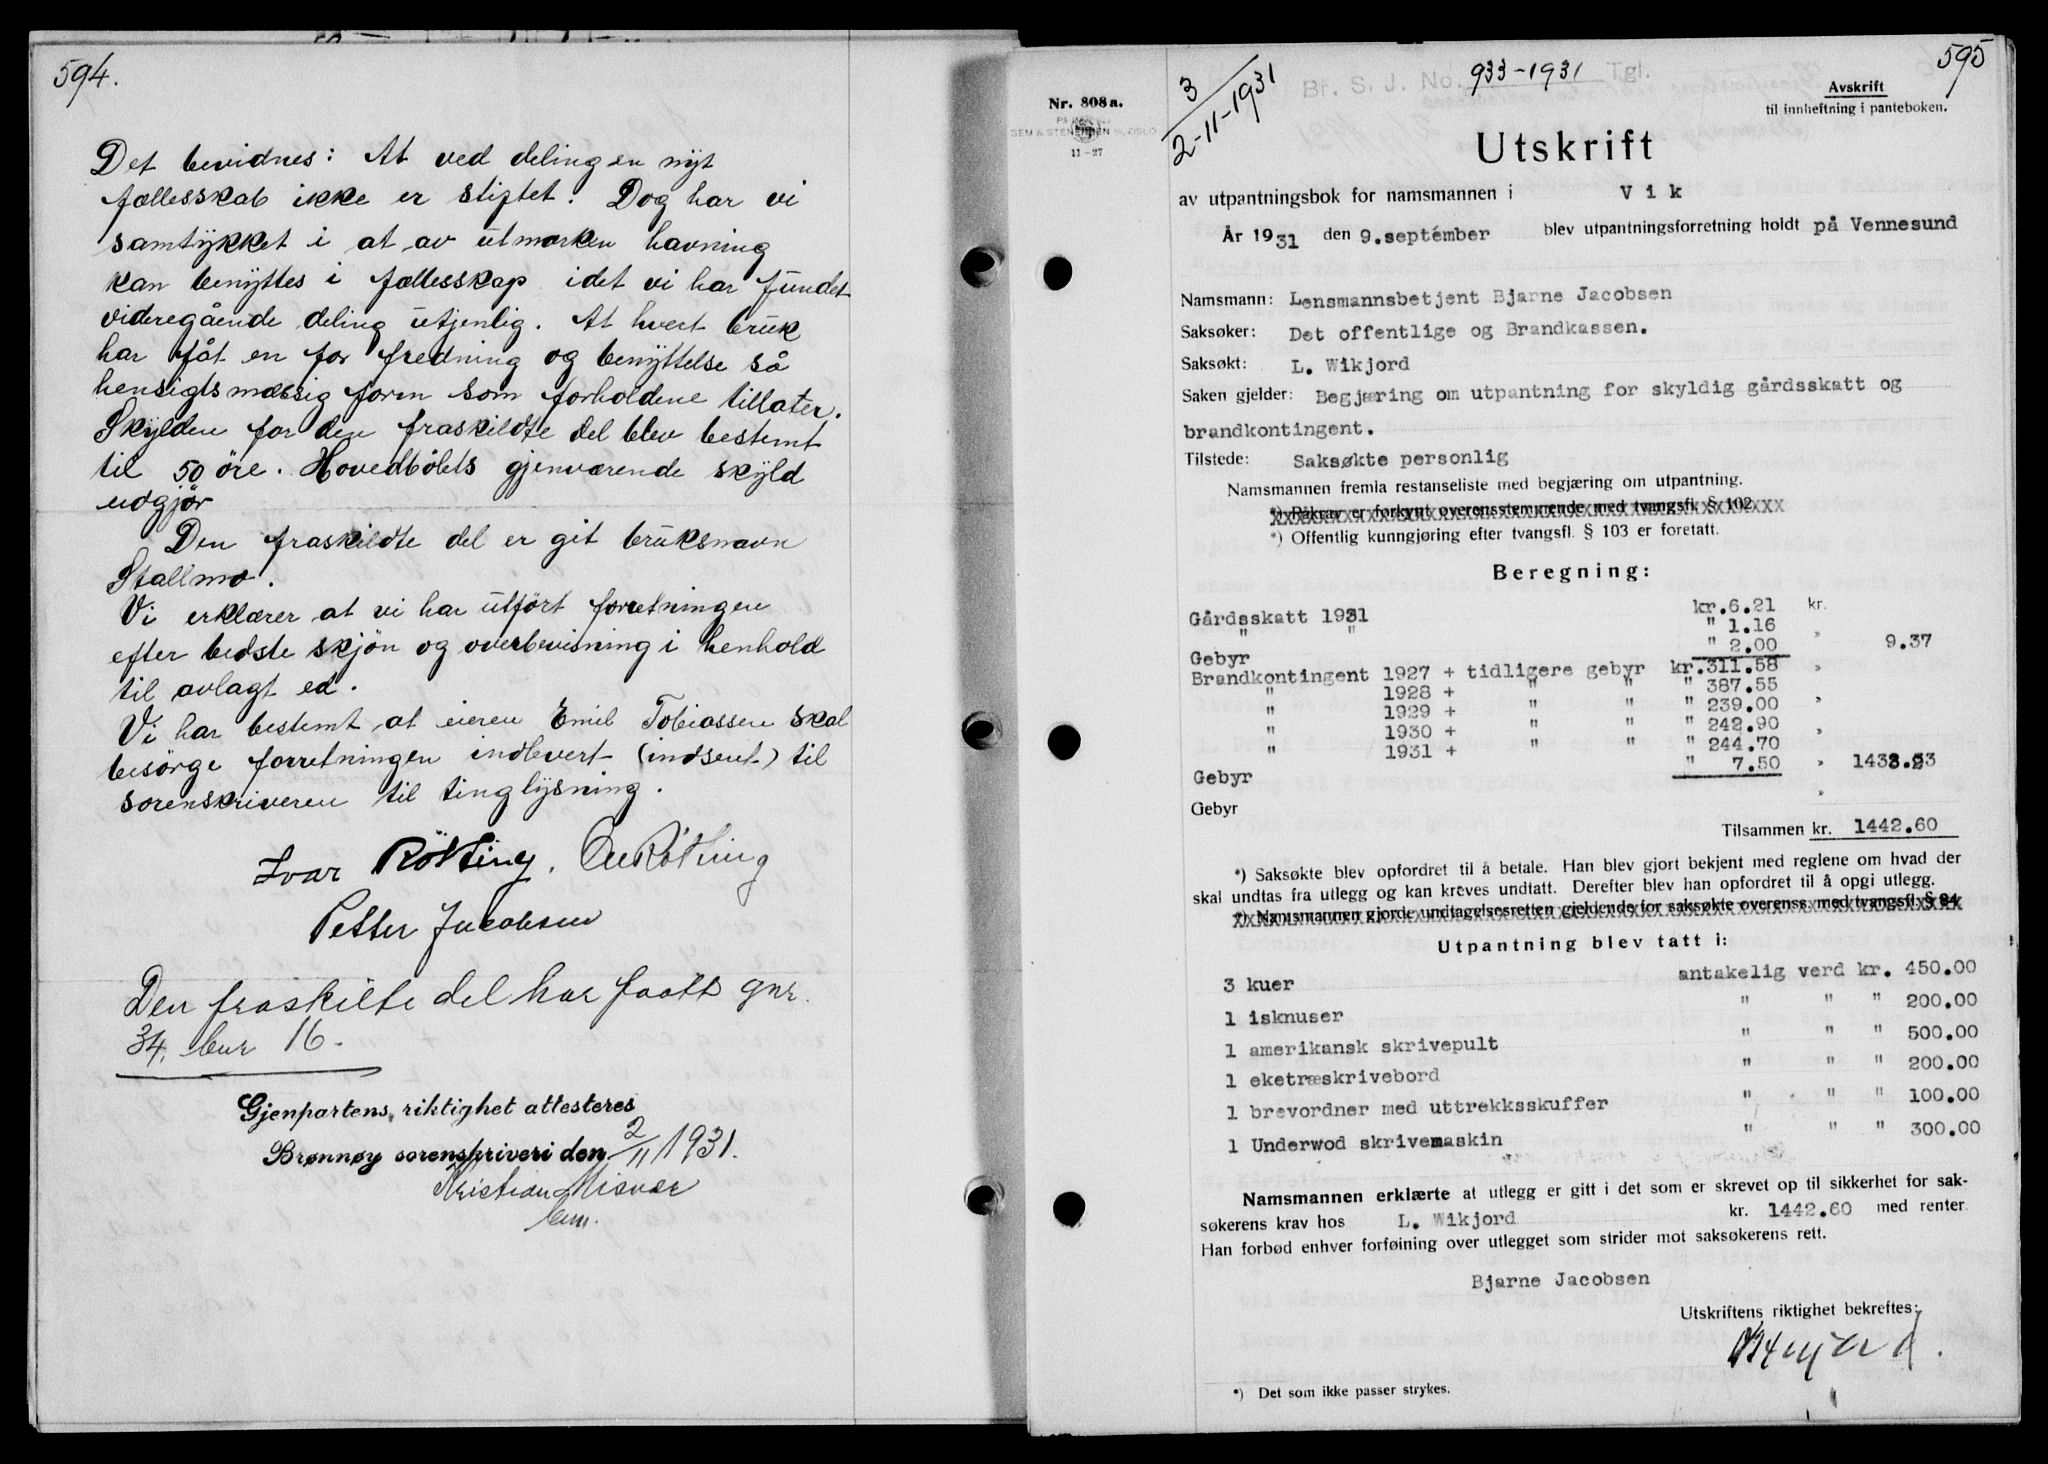 594.
Det bevidnes: At ved delingen nyt
fællesskab ikke er stiftet. Dog har vi
samtykket i at av utmarken havning
kan benyttes i fællesskap idet vi har fundet
videregående deling utjenlig. At hvert bruk
har fåt en for fredning og benyttelse så
hensigtsmæssig form som forholdene tillater.
Skylden for den fraskildte del blev bestemt
til 50 öre. Hovedbölets gjenværende skyld
udgjör
Den fraskildte del er git bruksnavn
Stallmo.
Vi erklærer at vi har utfört forretningen
efter bedste skjön og overbevisning i henhold
til avlagt ed.
Vi har bestemt at eieren Emil Tobiassen skal
besörge forretningen indlevert (indsent) til
sorenskriveren til tinglysning.
Ivar Rötting. Ole Rötting
Petter Jacobsen
Den fraskilte del har faatt gnr.
34, bnr 16.
Gjenpartens riktighet attesteres
Brønnøy sorenskriveri den 2/11 1931.
Kristian
595
3
2-11-1931
Nr. 808a.
SEM & STENERSEN A/S, OSLO
11-27
Br. S. J. No. 933-1931 Tgl.
Avskrift
til innheftning i panteboken.
Utskrift
av utpantningsbok for namsmannen i Vik
År 1931 den 9.september blev utpantningsforretning holdt på Vennesund
Namsmann: Lensmannsbetjent Bjarne Jacobsen
Saksøker: Det offentlige og Brandkassen.
Saksøkt: L. Wikjord
Saken gjelder: Begjæring om utpantning for skyldig gårdsskatt og
brandkontingent.
Tilstede: Saksøkte personlig
Namsmannen fremla restanseliste med begjæring om utpantning.
*) Påkrav er forkynt overensstemmende med tvangsfl. § 102.
*) Offentlig kunngjøring efter tvangsfl. § 103 er foretatt.
Beregning:
Gårdsskatt 1931 kr.6.21 kr.
" " " 1.16
Gebyr " 2.00 " 9.37
Brandkontingent 1927 + tidligere gebyr kr.311.58 "
" 1928 + " " " 387.55
" 1929 + " " " 239.00 "
" 1930 + " " " 242.90 "
" 1931 + " " " 244.70
Gebyr " 7.50 " 1433.23
Gebyr "
Tilsammen kr. 1442.60
*) Saksøkte blev opfordret til å betale. Han blev gjort bekjent med reglene om hvad der
skal undtas fra utlegg og kan kreves undtatt. Derefter blev han opfordret til å opgi utlegg.
*) Namsmannen gjorde undtagelsesretten gjeldende for saksøkte overenss. med tvangsfl. § 84.
Utpantning blev tatt i:
3 kuer antakelig verd kr. 450.00
1 isknuser " " " 200.00
1 amerikansk skrivepult " " " 500.00
1 eketræskrivebord " " " 200.00
1 brevordner med uttrekksskuffer " " " 100.00
1 Underwod skrivemaskin " " " 300.00
Namsmannen erklærte at utlegg er gitt i det som er skrevet op til sikkerhet for sak-
søkerens krav hos L. Wikjord kr. 1442.60 med renter
Han forbød enhver forføining over utlegget som strider mot saksøkerens rett.
Bjarne Jacobsen
Utskriftens riktighet bekreftes:
*) Det som ikke passer strykes.